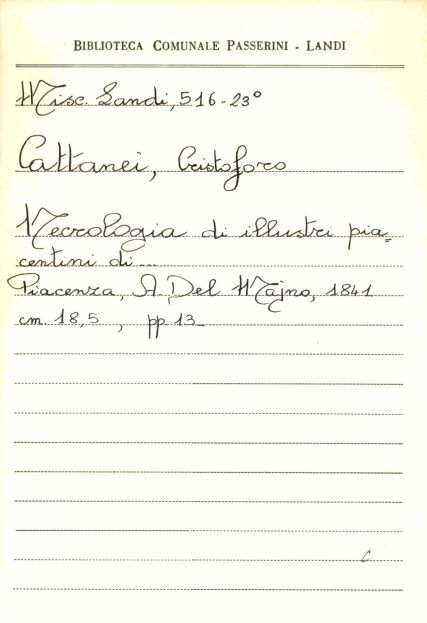 BIBLIOTECA COMUNALE PASSERINI - LANDI
Misc. Landi, 516-23°
Cattanei, Cristoforo
Necrologia di illustri pia=
centini di...
Piacenza, A. Del Majno, 1841
cm. 18,5 , pp. 13